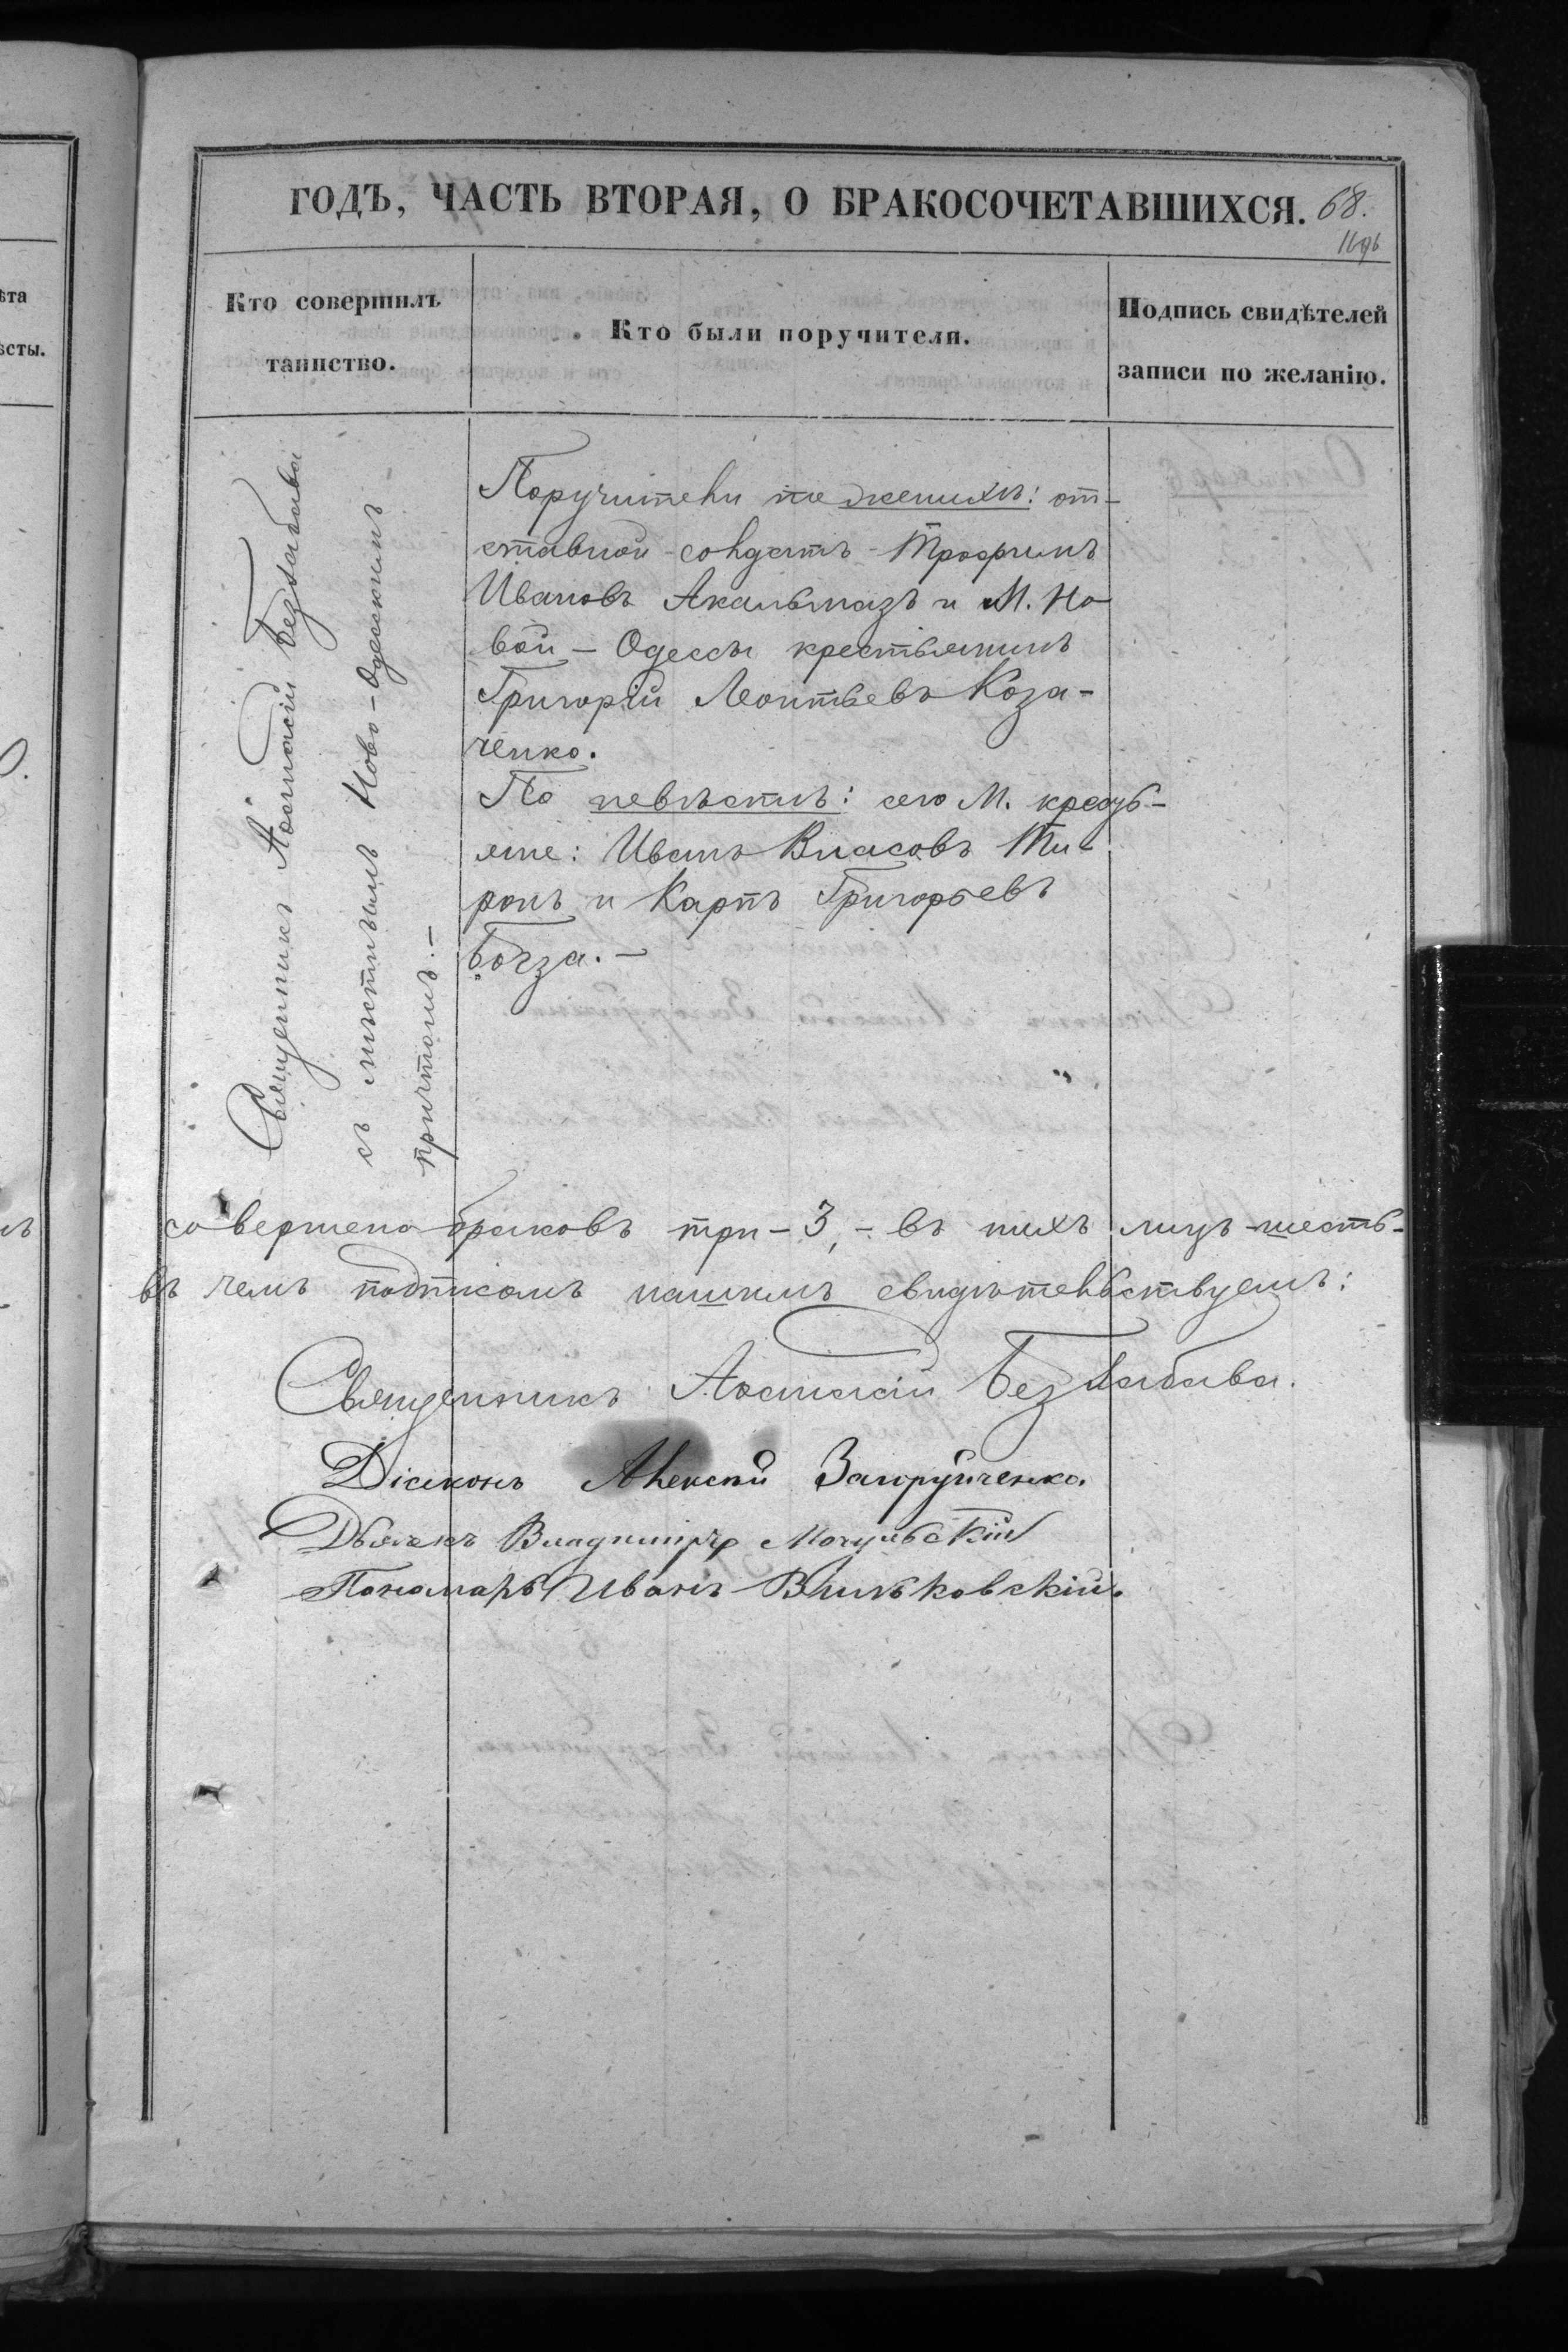 ГОДЪ, ЧАСТЬ ВТОРАЯ, О БРАКОСОЧЕТАВШИХСЯ. 68.
Кто совершилъ
таинство.
Кто были поручители.
Подпись свидѣтелей
записи по желанію.
Священникъ Аѳанасій Безбабава
съ мѣстнымъ Ново-Одесскимъ
причтомъ.-
Поручители по женихѣ: от-
ставной солдатъ Трофимъ
Ивановъ Акальмазъ и М. Но-
вой-Одессы крестьянинъ
Григорій Леонтьевъ Коза-
ченко.
По невѣстѣ: сего М. кресть-
яне: Иванъ Власовъ Ти-
ронъ и Карпъ Григорьевъ
Богза.-
совершено браковъ три-3,- въ нихъ лицъ шесть-
въ чемъ подписомъ нашимъ свидѣтельствуемъ:
Священникъ Аѳанасій Безбабава.
Діаконъ Алексѣй Загоруйченко.
Дьячекъ Владиміръ Мочульскій
Пономарь Иванъ Вильковскій.
ѣта
ѣсты.